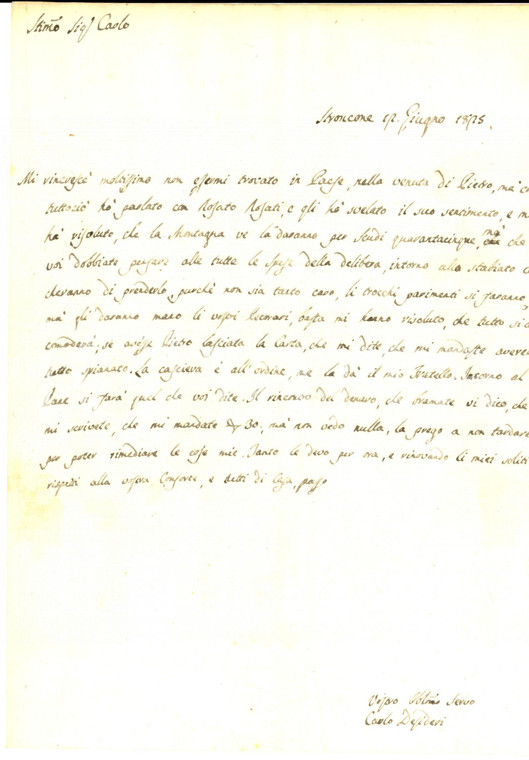 Stim̃o Sig.r Carlo
Stroncone 12. Giugno 1825.
Mi rincresce moltissimo non essermi trovato in Paese, nella venuta di Pietro, ma c
tuttociò hò parlato con Rosato Rosati, e gli hò svelato il suo sentimento, e m
hà risoluto, che la Montagna ve la daranno per Scudi quarantacinque, mà che
voi dobbiate pensare alle tutte le spese della delibera, intorno allo Stabiato c
cheranno di prenderlo, purchè non sia tanto caro, li trocchi parimenti si faranno,
mà gli daranno mano li vostri Pecorari, basta mi hanno risoluto, che tutto si
comoderà; se avesse Pietro lasciata la Carta, che mi dite, che mi mandaste averei
tutto spianato. La casciera è all'ordine, me la dà il mio Fratello. Intorno al
Pane si farà quel che voi dite. Il rincontro del denaro, che bramate vi dico, che
mi scrivete, che mi mandate 30, mà non vedo nulla, la prego a non tardare
per poter rimediare le cose mie. Tanto le devo per ora, e rinovando li miei soliti
rispetti alla vostra Consorte, e tutti di Casa, passo
Vostro Servo
Carlo Desideri